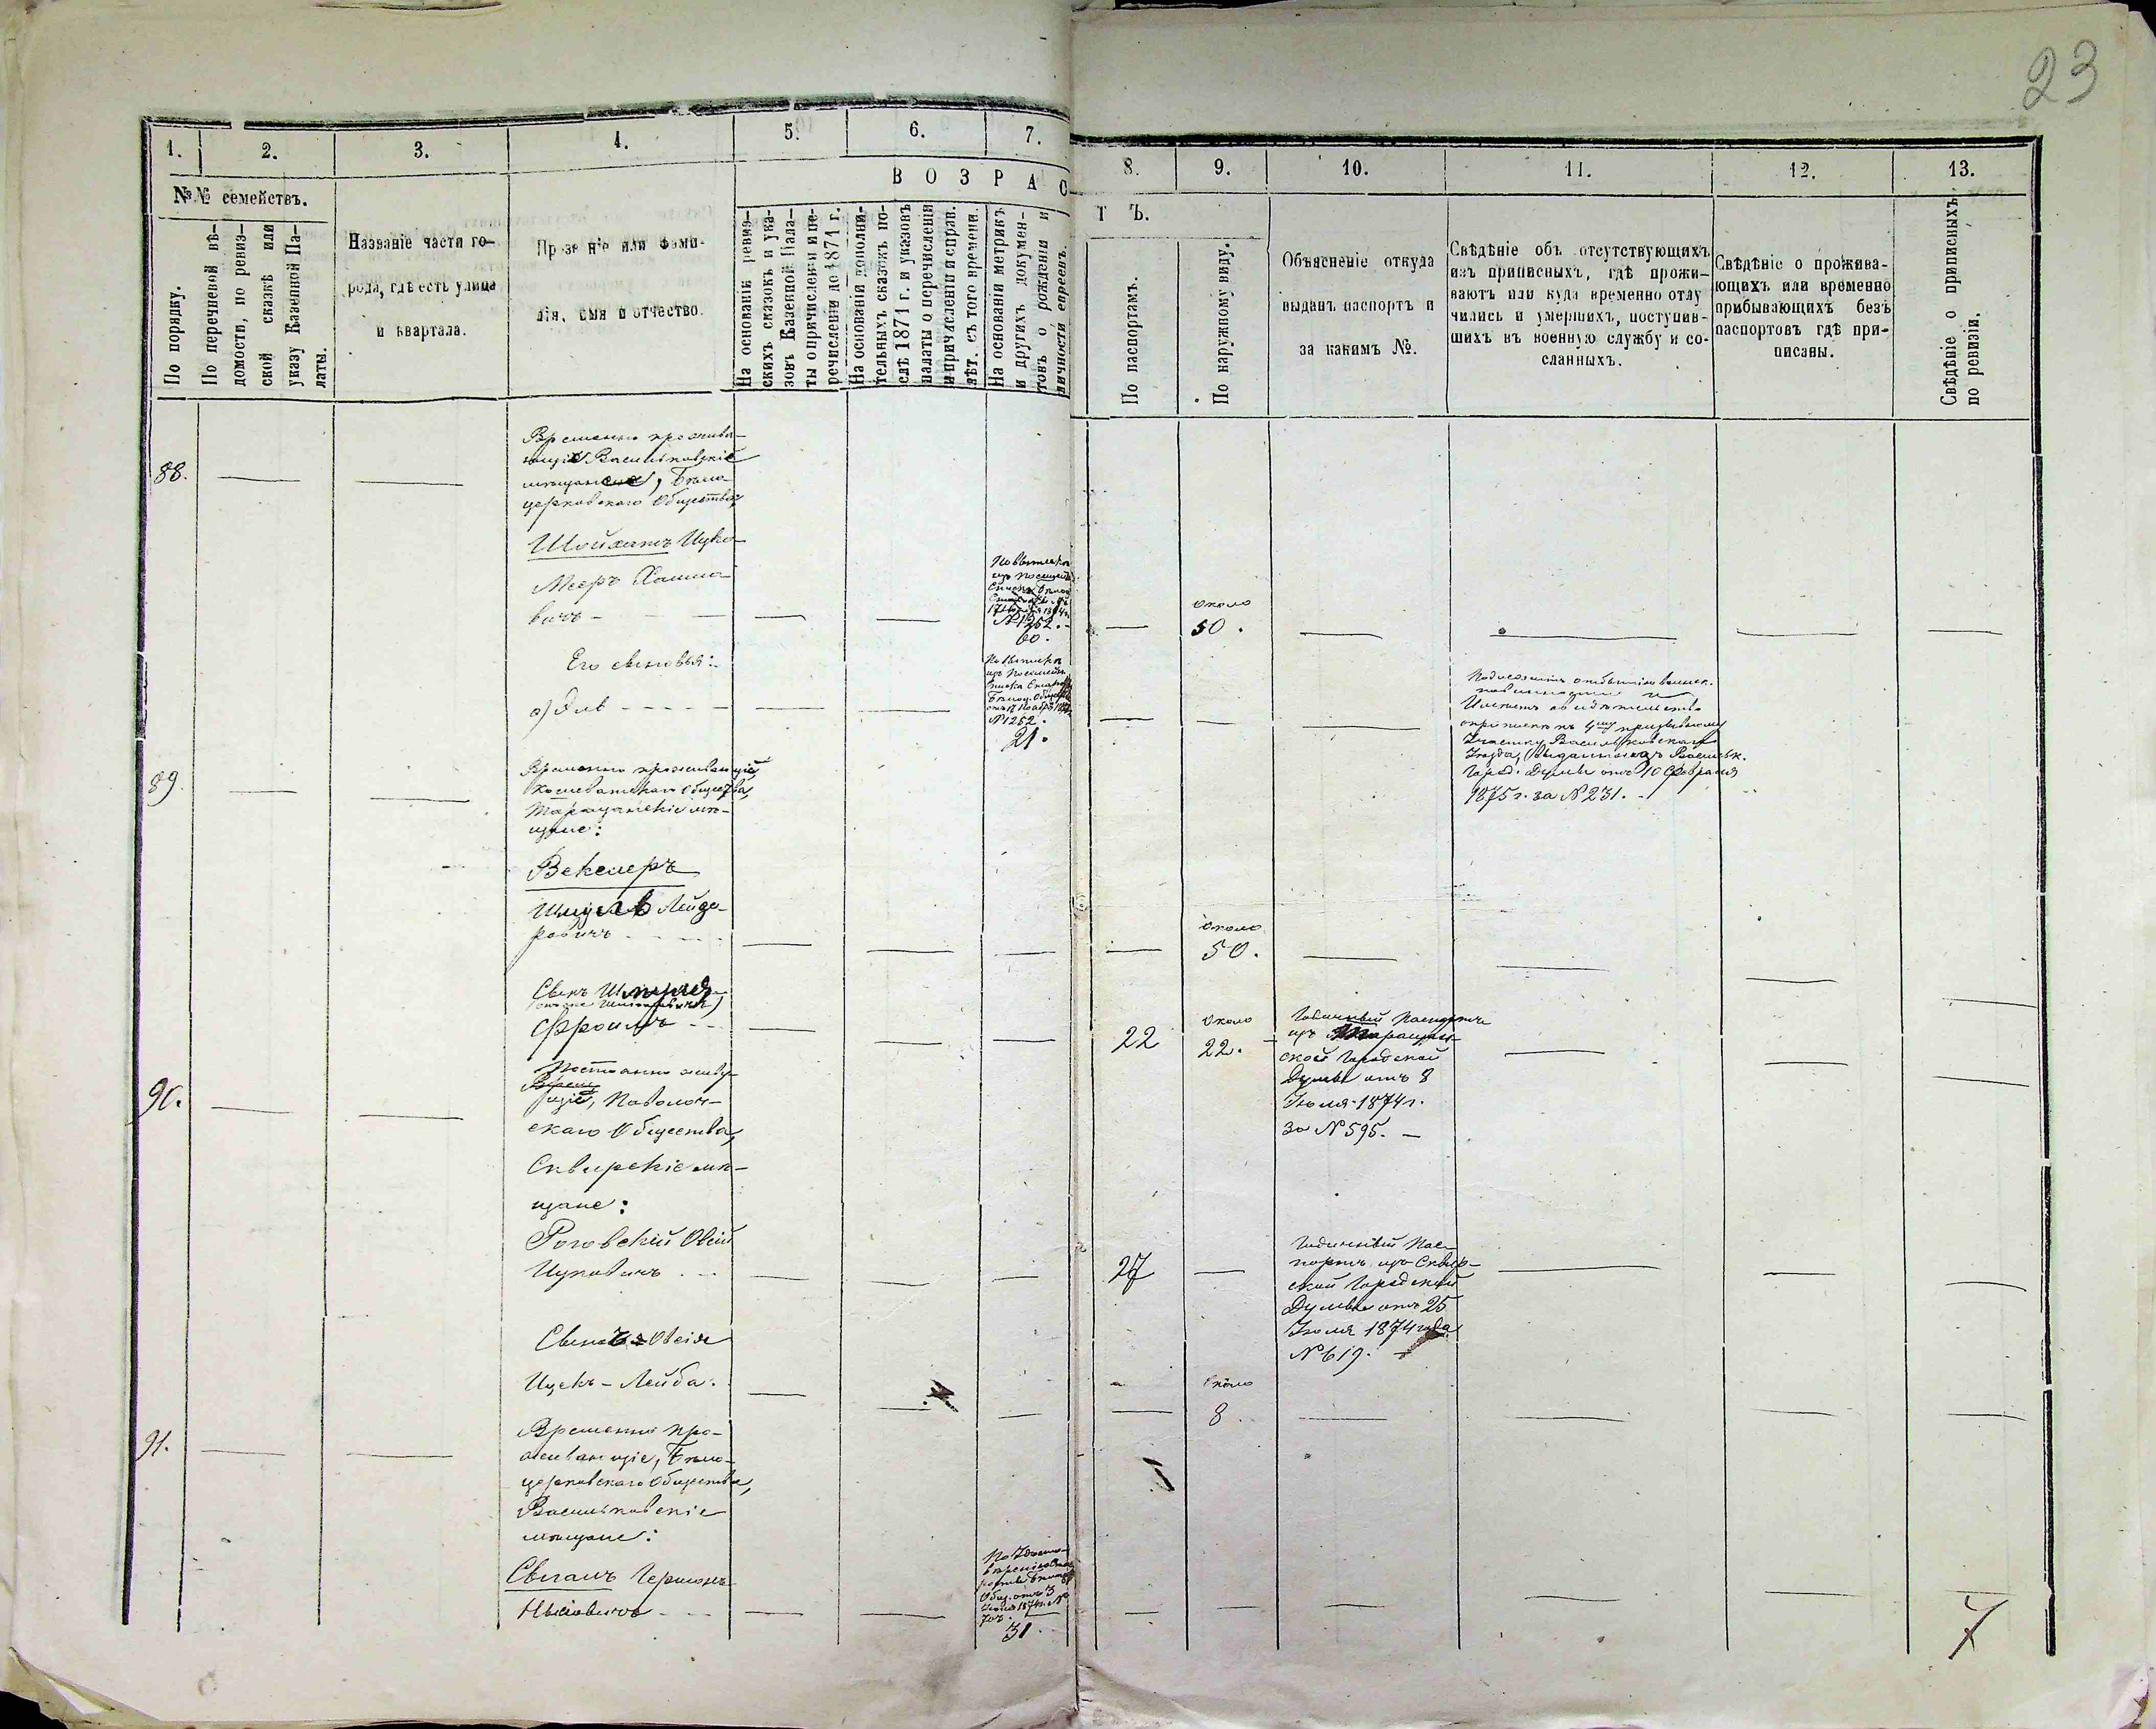 23
1. 2. 3. 4. 5. 6. 7. 8. 9. 10. 11. 12. 13.
№№ семействъ.
По порядку.
По перечневой вѣ-
домости, по ревиз-
ской сказкѣ или
указу Казенной Па-
латы.
Названіе части го-
рода, гдѣ есть улица
и квартала.
Прозваніе или фами-
лія, имя и отчество.
ВОЗРАСТЪ.
На основаніи ревиз-
скихъ сказокъ и ука-
зовъ Казенной Пала-
ты о причисленіи и пе-
речисленіи до 1871 г.
На основаніи дополни-
тельныхъ сказокъ по-
слѣ 1871 г. и указовъ
палаты о перечисленіи
и причисленіи исправ.
лѣт. съ того времени.
На основаніи метрикъ
и другихъ докумен-
товъ о рожденіи и
личности евреевъ.
По паспортамъ.
По наружному виду.
Объясненіе откуда
выданъ паспортъ и
за какимъ №.
Свѣдѣніе объ отсутствующихъ
изъ приписныхъ, гдѣ прожи-
ваютъ или куда временно отлу
чились и умершихъ, поступив-
шихъ въ военную службу и со-
сланныхъ.
Свѣдѣніе о прожива-
ющихъ или временно
прибывающихъ безъ
паспортовъ гдѣ при-
писаны.
Свѣдѣніе о приписныхъ
по ревизіи.
88.
Временно прожива-
ющіе Васильковскіе
мѣщане, Бѣло-
церковскаго Общества,
Шойхатъ Ицко-
Меръ Хаимо-
вичъ
По выпискѣ
изъ посемейн.
№ 1252.
60.
около
50.
Его сыновья:
а) Эль
По выпискѣ
изъ посемейн.
№ 1252.
21.
Подлежитъ отбытію воинск.
повинности и
Имѣетъ свидѣтельство
о припискѣ къ 4му призывному
Участку Васильковскаго
Уѣзда, выданное изъ Васильк.
Город. Думы отъ 10 Февраля
1875 г. за № 231.
89.
Временно проживающіе,
Общества,
Таращанскіе мѣ-
щане:
Векслеръ
Лейзе-
ровичъ
около
50.
Сынъ
Фроимъ
22
около
22.
Годичный Паспортъ
изъ Таращан-
ской Городской
Думы отъ 8
Іюля 1874 г.
за № 595.
90.
Постоянно живу-
щіе, Паволоч-
скаго Общества,
Сквирскіе мѣ-
щане:
Роговскій Овсій
Ицковичъ
27
Годичный Пас-
портъ изъ Сквир-
ской Городской
Думы отъ 25
Іюля 1874 года
№ 619.
Сынъ Овсія
Ицекъ-Лейба.
около
8
91.
Временно про-
живающіе, Бѣло-
церковскаго Общества,
Васильковскіе
мѣщане:
Гершонъ
31.
7